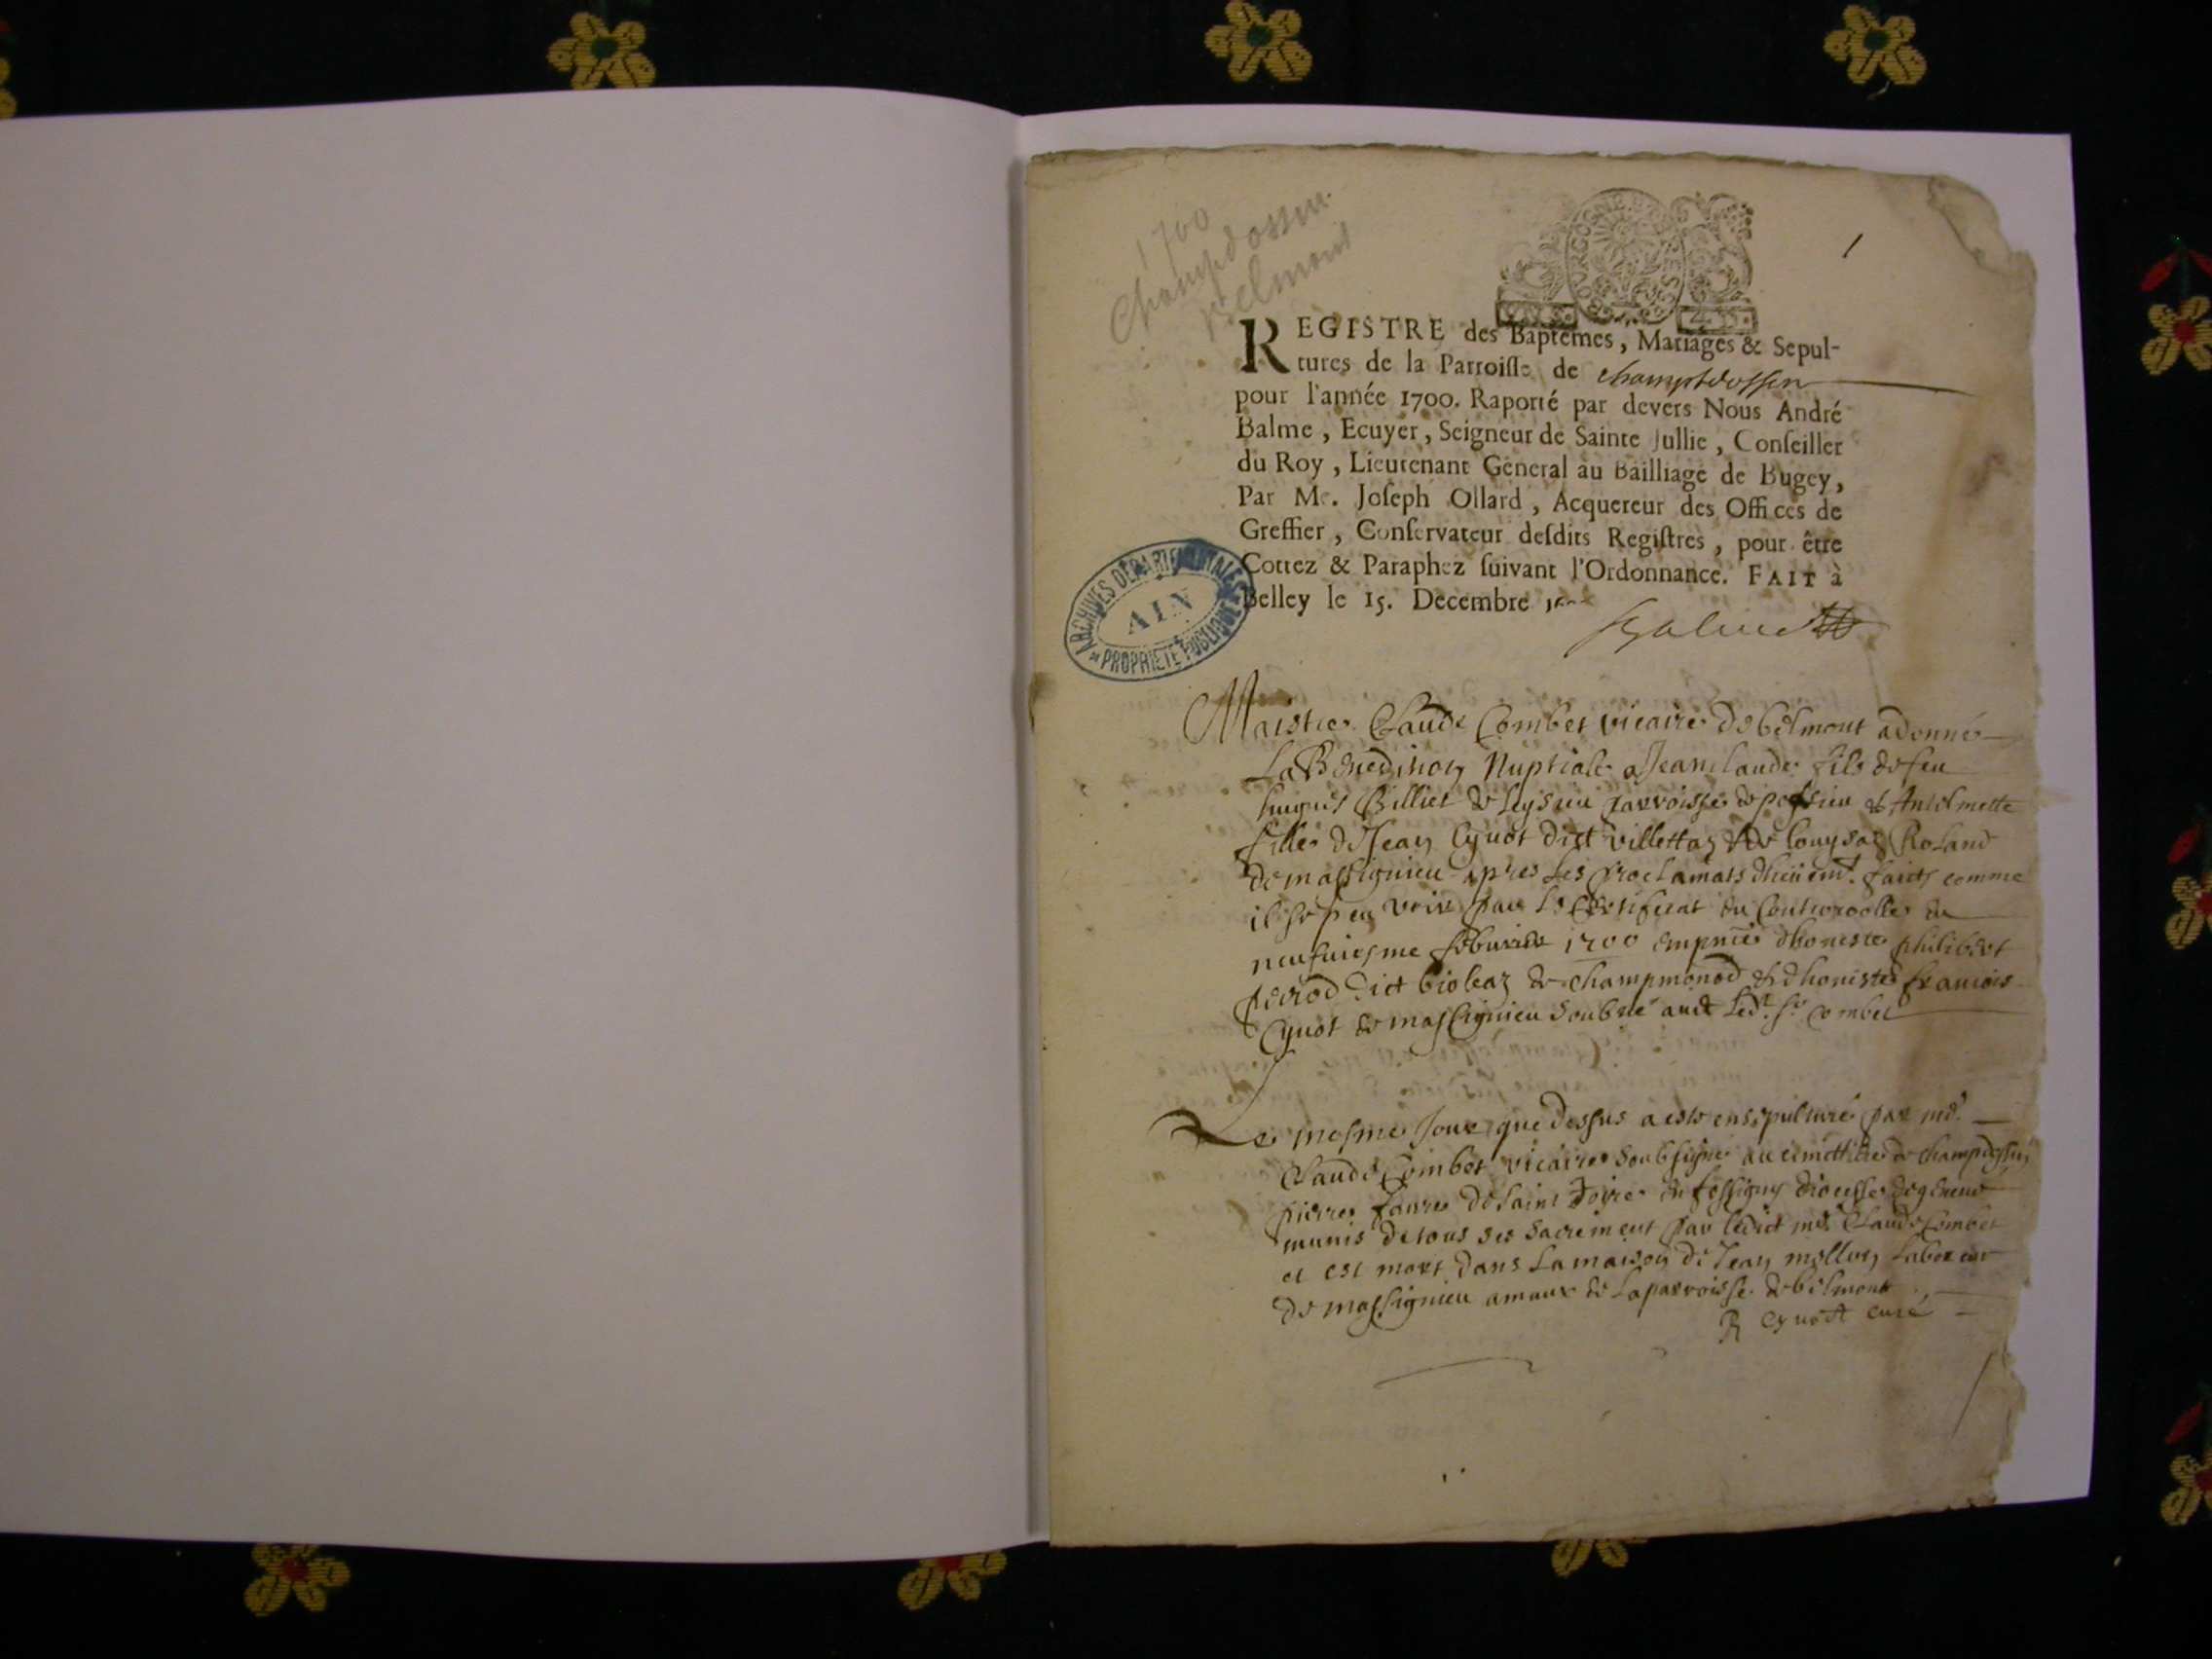 1700
Champdossin
Belmont
1
REGISTRE des Baptêmes, Mariages & Sepul-
tures de la Parroisse de champtdossin
pour l'année 1700. Raporté par devers Nous André
Balme, Ecuyer, Seigneur de Sainte Jullie, Conseiller
du Roy, Lieutenant General au Bailliage de Bugey,
Par Me. Joseph Ollard, Acquereur des Offices de
Greffier, Conservateur desdits Registres, pour être
Cottez & Paraphez suivant l'Ordonnance. FAIT à
Belley le 15. Decembre
ARCHIVES DÉPARTEMENTALES
AIN
PROPRIÉTÉ PUBLIQUE
Maistre Claude Combet vicaire de belmont a donné
La Benediction Nuptiale a Jeanclaude fils de feu
hugues Billiet de Leysieu parroisse de et Antelmette
fille de Jean Cynot dict villettaz et de Louysaz Roland
de massignieu apres les proclamats faicts comme
il se peu voir par le Certificat du Controolle du
neufviesme febvrier 1700 dhoneste philibert
perrod dict bioleaz de champmonod et dhoneste francois
Cynot de massignieu soubné avec Led. Sr combet
Le mesme Jour que dessus a esté ensepulturé par me.
Claude Combet vicaire soubsigné au cimettiere de champdossin
pierre favre de saint Joire en fossigny diocesse de geneve
munis de tous ses sacrement par ledict me. Claude Combet
et est mort dans La maison de Jean mollon Laboreur
de massignieu amaux de La parroisse de belmont
R Cynot curé